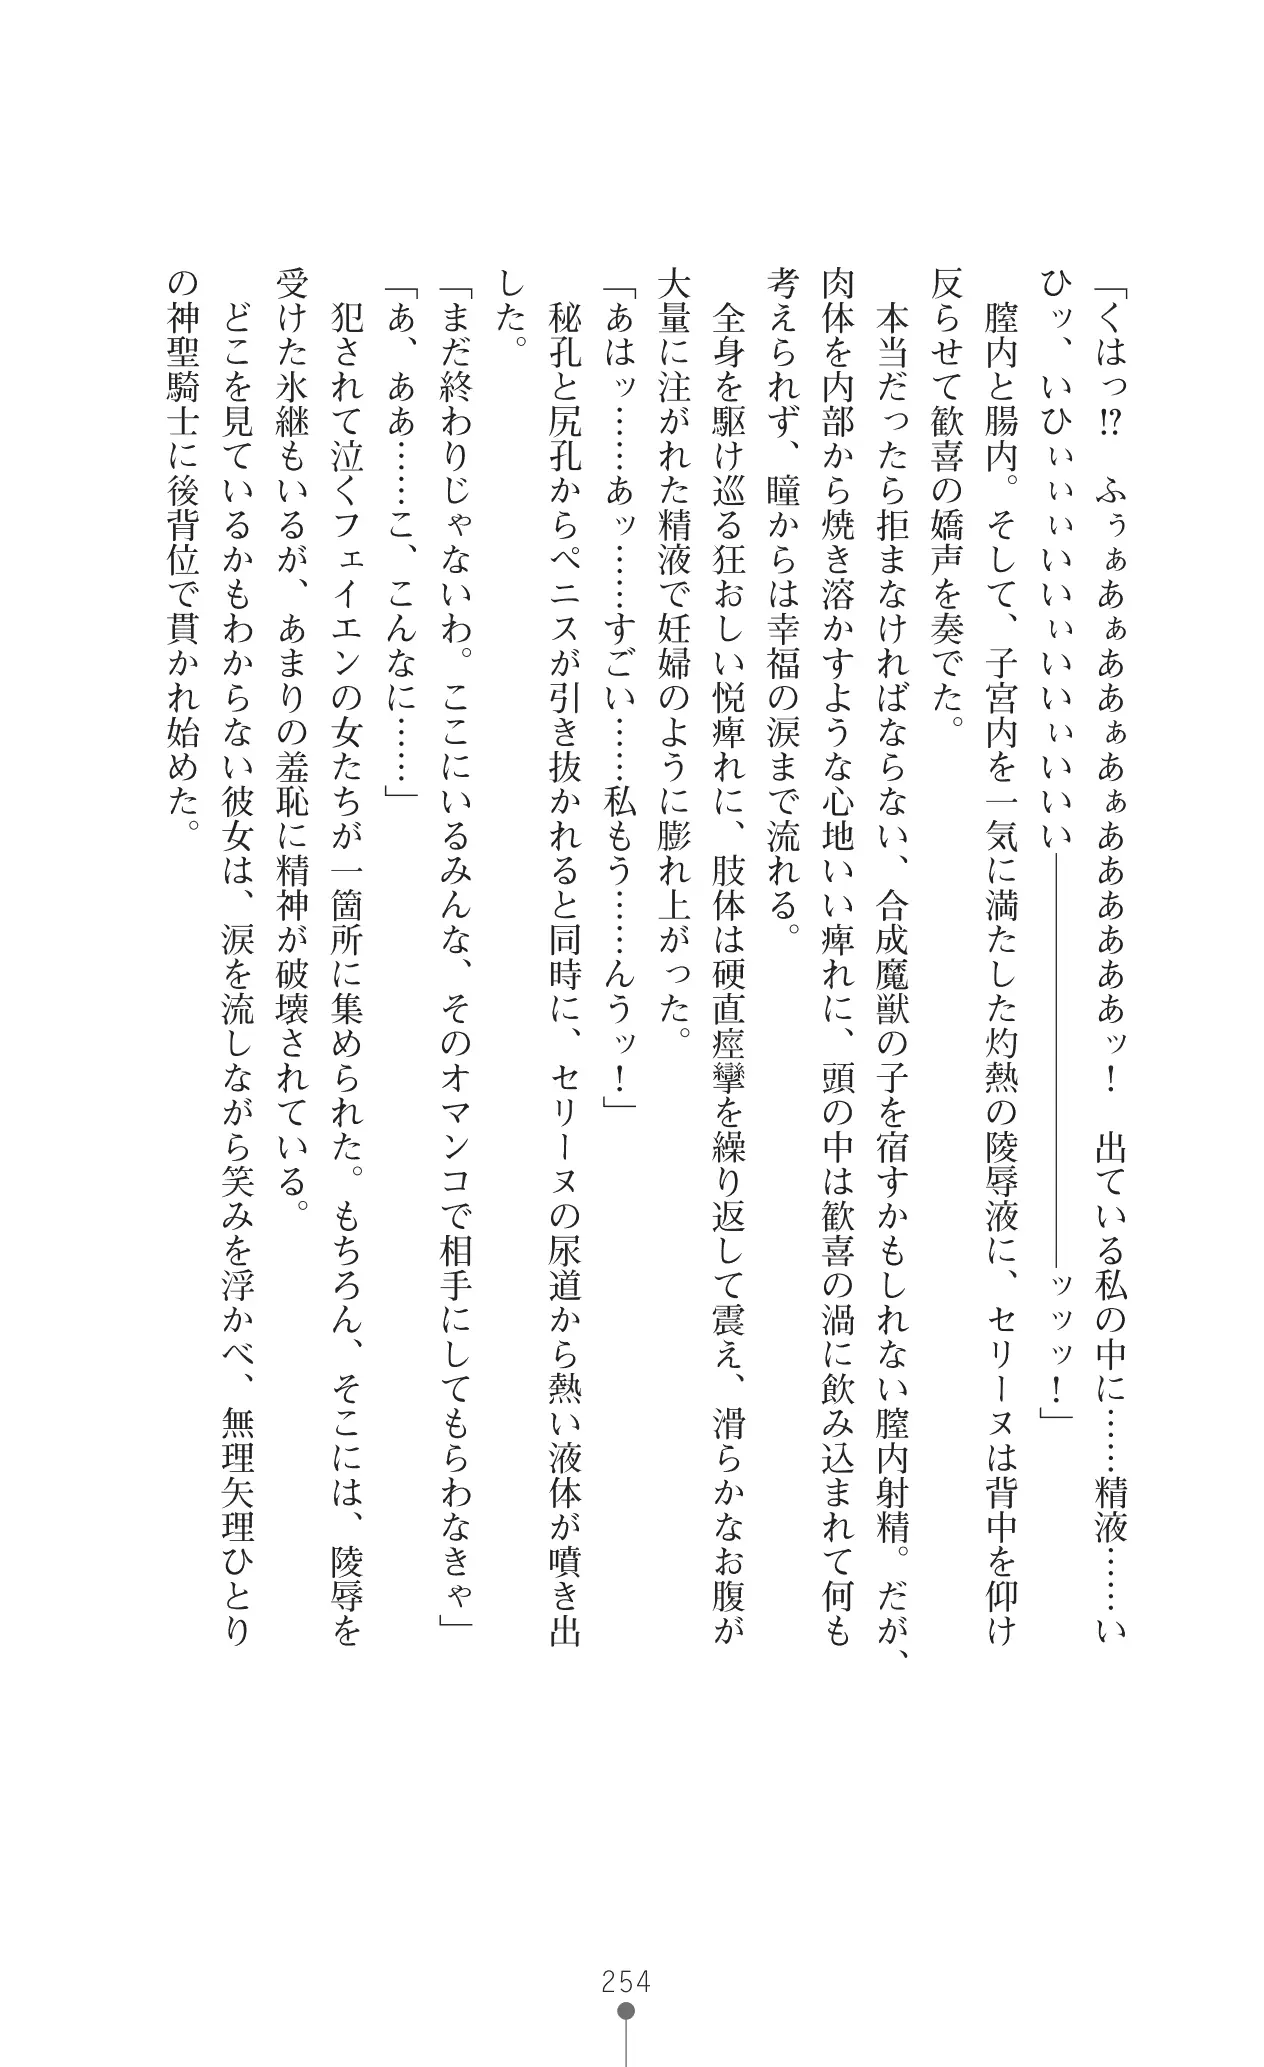 「くはっ!?　ふぅぁあぁああぁあぁああああああッ！　出ている私の中に……精液……い
ひッ、いひぃぃぃいいぃいいぃいいい――――――――――――ッッッ！」
　膣内と腸内。そして、子宮内を一気に満たした灼熱の陵辱液に、セリーヌは背中を仰け
反らせて歓喜の嬌声を奏でた。
　本当だったら拒まなければならない、合成魔獣の子を宿すかもしれない膣内射精。だが、
肉体を内部から焼き溶かすような心地いい痺れに、頭の中は歓喜の渦に飲み込まれて何も
考えられず、瞳からは幸福の涙まで流れる。
　全身を駆け巡る狂おしい悦痺れに、肢体は硬直痙攣を繰り返して震え、滑らかなお腹が
大量に注がれた精液で妊婦のように膨れ上がった。
「あはッ……あッ……すごい……私もう……んうッ！」
　秘孔と尻孔からペニスが引き抜かれると同時に、セリーヌの尿道から熱い液体が噴き出
した。
「まだ終わりじゃないわ。ここにいるみんな、そのオマンコで相手にしてもらわなきゃ」
「あ、ああ……こ、こんなに……」
　犯されて泣くフェイエンの女たちが一箇所に集められた。もちろん、そこには、陵辱を
受けた氷継もいるが、あまりの羞恥に精神が破壊されている。
　どこを見ているかもわからない彼女は、涙を流しながら笑みを浮かべ、無理矢理ひとり
の神聖騎士に後背位で貫かれ始めた。
254